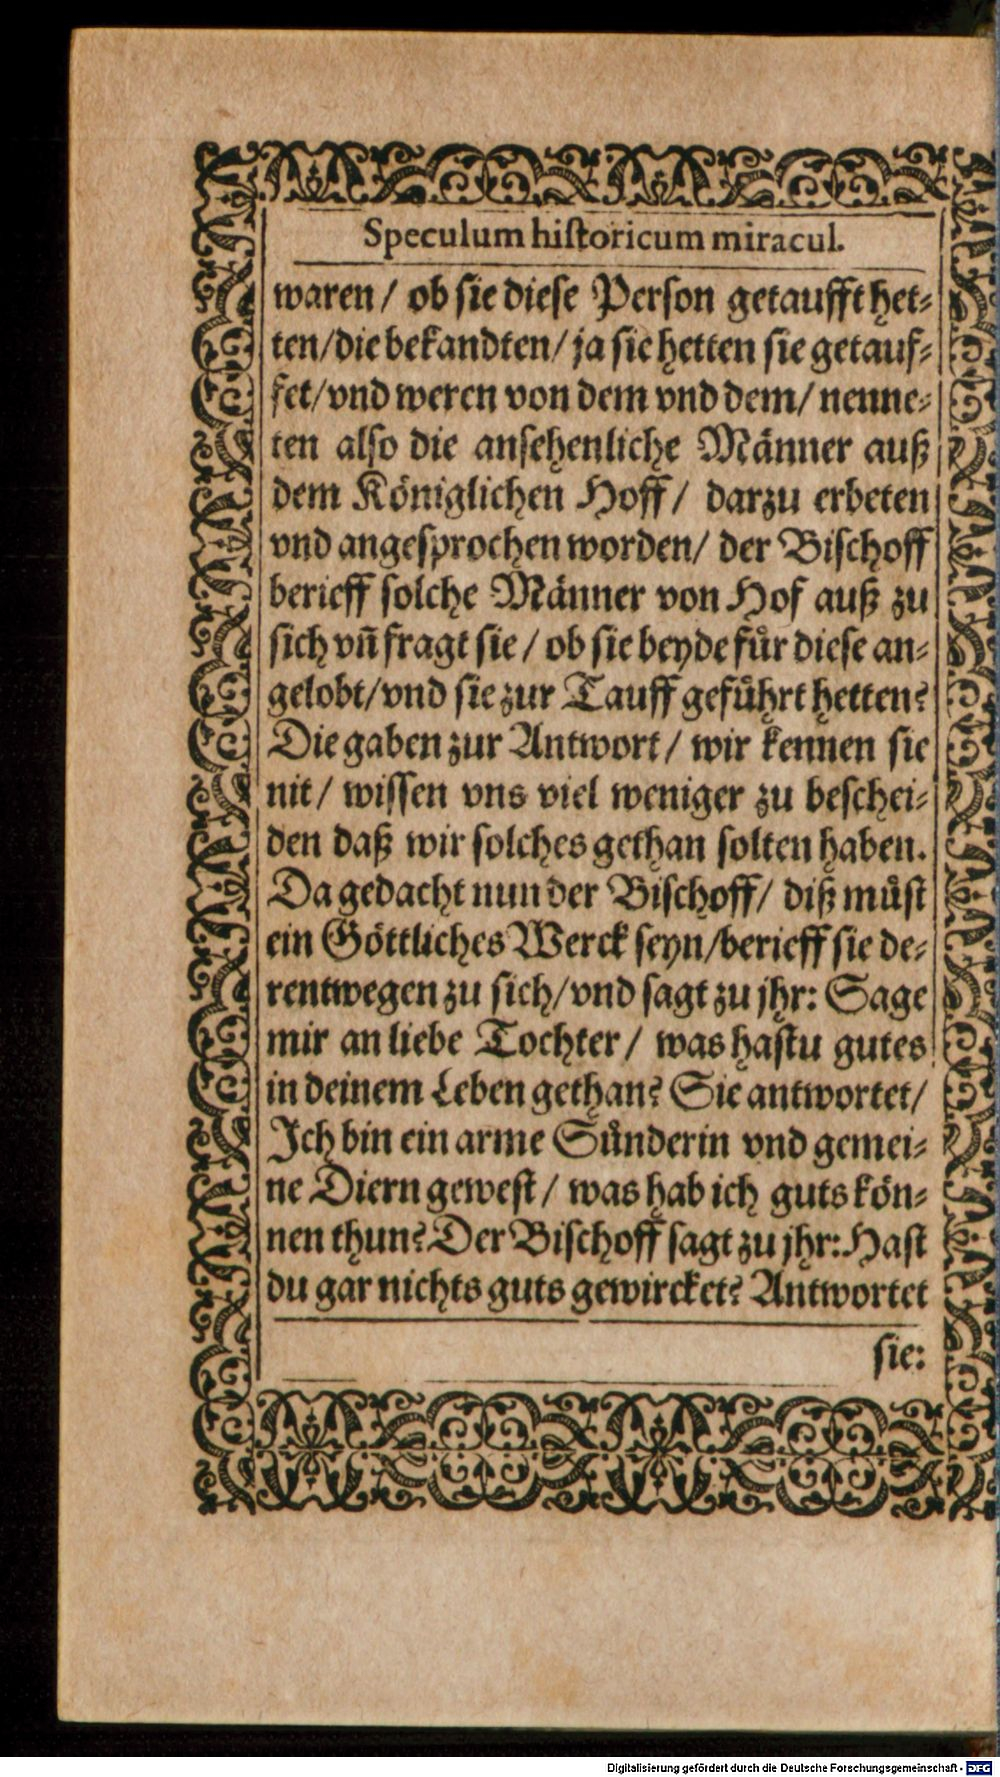 Speculum historicum miracul.
waren / ob sie diese Person getaufft het⸗
ten/die bekandten/ ja sie hetten sie getauf⸗
fet/vnd weren von dem vnd dem/ nenne⸗
ten also die ansehenliche Männer auß
dem Königlichen Hoff / darzu erbeten
vnd angesprochen worden/ der Bischoff
berieff solche Männer von Hof auß zu
sich vñ fragt sie / ob sie beyde fuͤr diese an⸗
gelobt/vnd sie zur Tauff gefuͤhrt hetten?
Die gaben zur Antwort / wir kennen sie
nit / wissen vns viel weniger zu beschei⸗
den daß wir solches gethan solten haben.
Da gedacht nun der Bischoff/ diß muͤst
ein Göttliches Werck seyn/berieff sie de⸗
rentwegen zu sich/vnd sagt zu jhr: Sage
mir an liebe Tochter / was hastu gutes
in deinem Leben gethan? Sie antwortet/
Ich bin ein arme Suͤnderin vnd gemei⸗
ne Diern gewest / was hab ich guts kön⸗
nen thun? Der Bischoff sagt zu jhr: Hast
du gar nichts guts gewircket? Antwortet
sie:
Digitalisierung gefördert durch die Deutsche Forschungsgemeinschaft - DFG